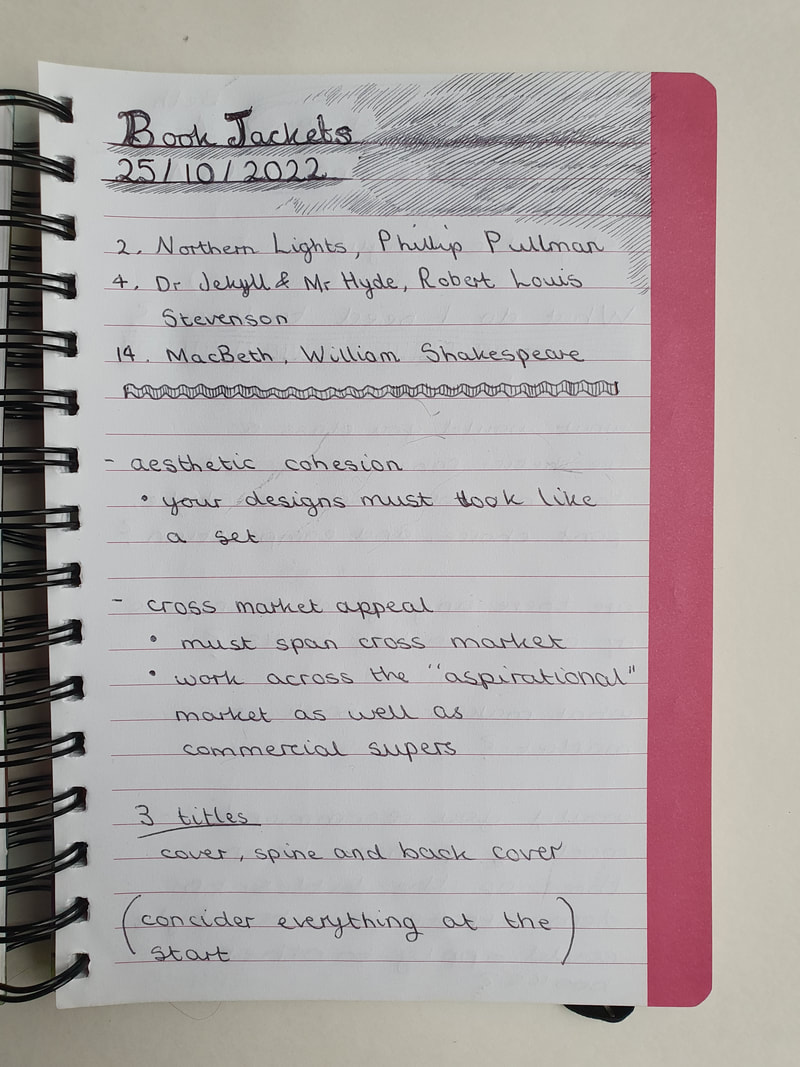 Book Jackets
25/10/2022
2. Northern Lights, Phillip Pullman
4. Dr Jekyll & Mr Hyde, Robert Louis
Stevenson
14. MacBeth, William Shakespeare
- aesthetic cohesion
• your designs must look like
a set
- cross market appeal
• must span cross market
• work across the "aspirational"
market as well as
commercial supers
3 titles
cover, spine and back cover
(concider everything at the
start)